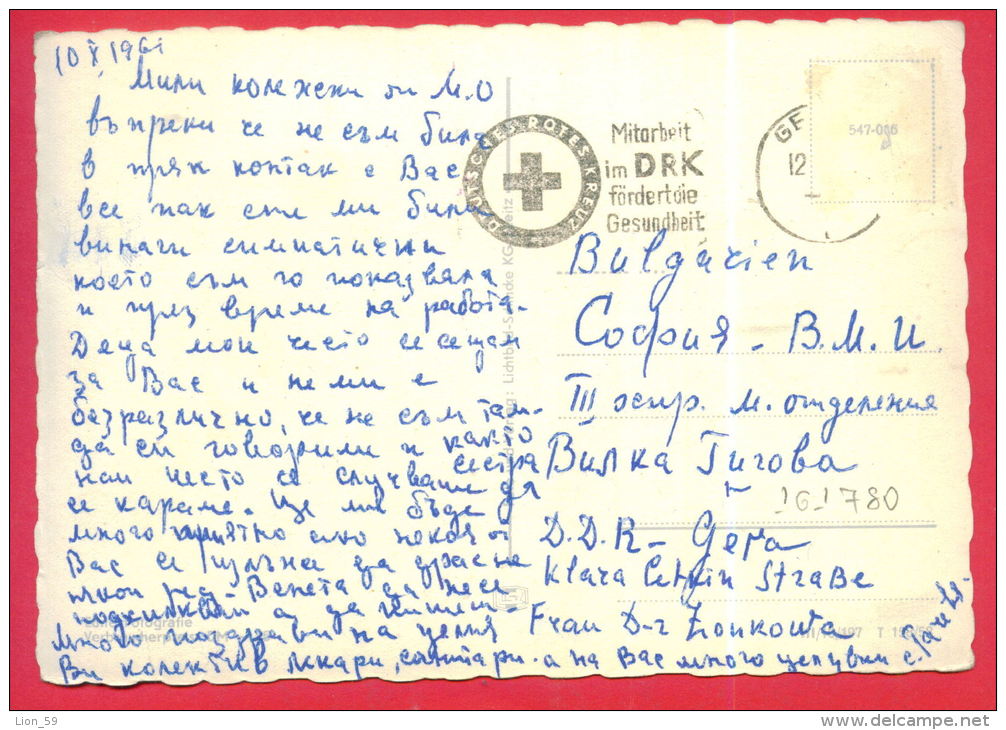 10 X 1961
Мили колежки от М.О
въпреки че не съм била
в пряк контак с Вас
все пак сте ми били
винаги симпатични
което съм го показвала
и през време на работа.
Деца мои често се сещам
за Вас и не ми е
безразлично, че не съм там.
да си говорим и както
най често се случваше да
се караме. Ще ми бъде
много приятно ако някоя от
Вас се
Венета да не се
а да пише
Много поздрави на целия
Ви колектив лекари, санитари. а на Вас много целувки с.
DEUTSCHES ROTES KREUZ
Mitarbeit
im DRK
fördert die
Gesundheit
GE
12
547-086
Bulgarien
София - В.М.И.
III хир. м. отделения
сестра Вилка Гигова
161780
D.D.R - Gera
Klara Cetkin Straße
Frau D-r Zonkowa
Lion_59
delcampe.net